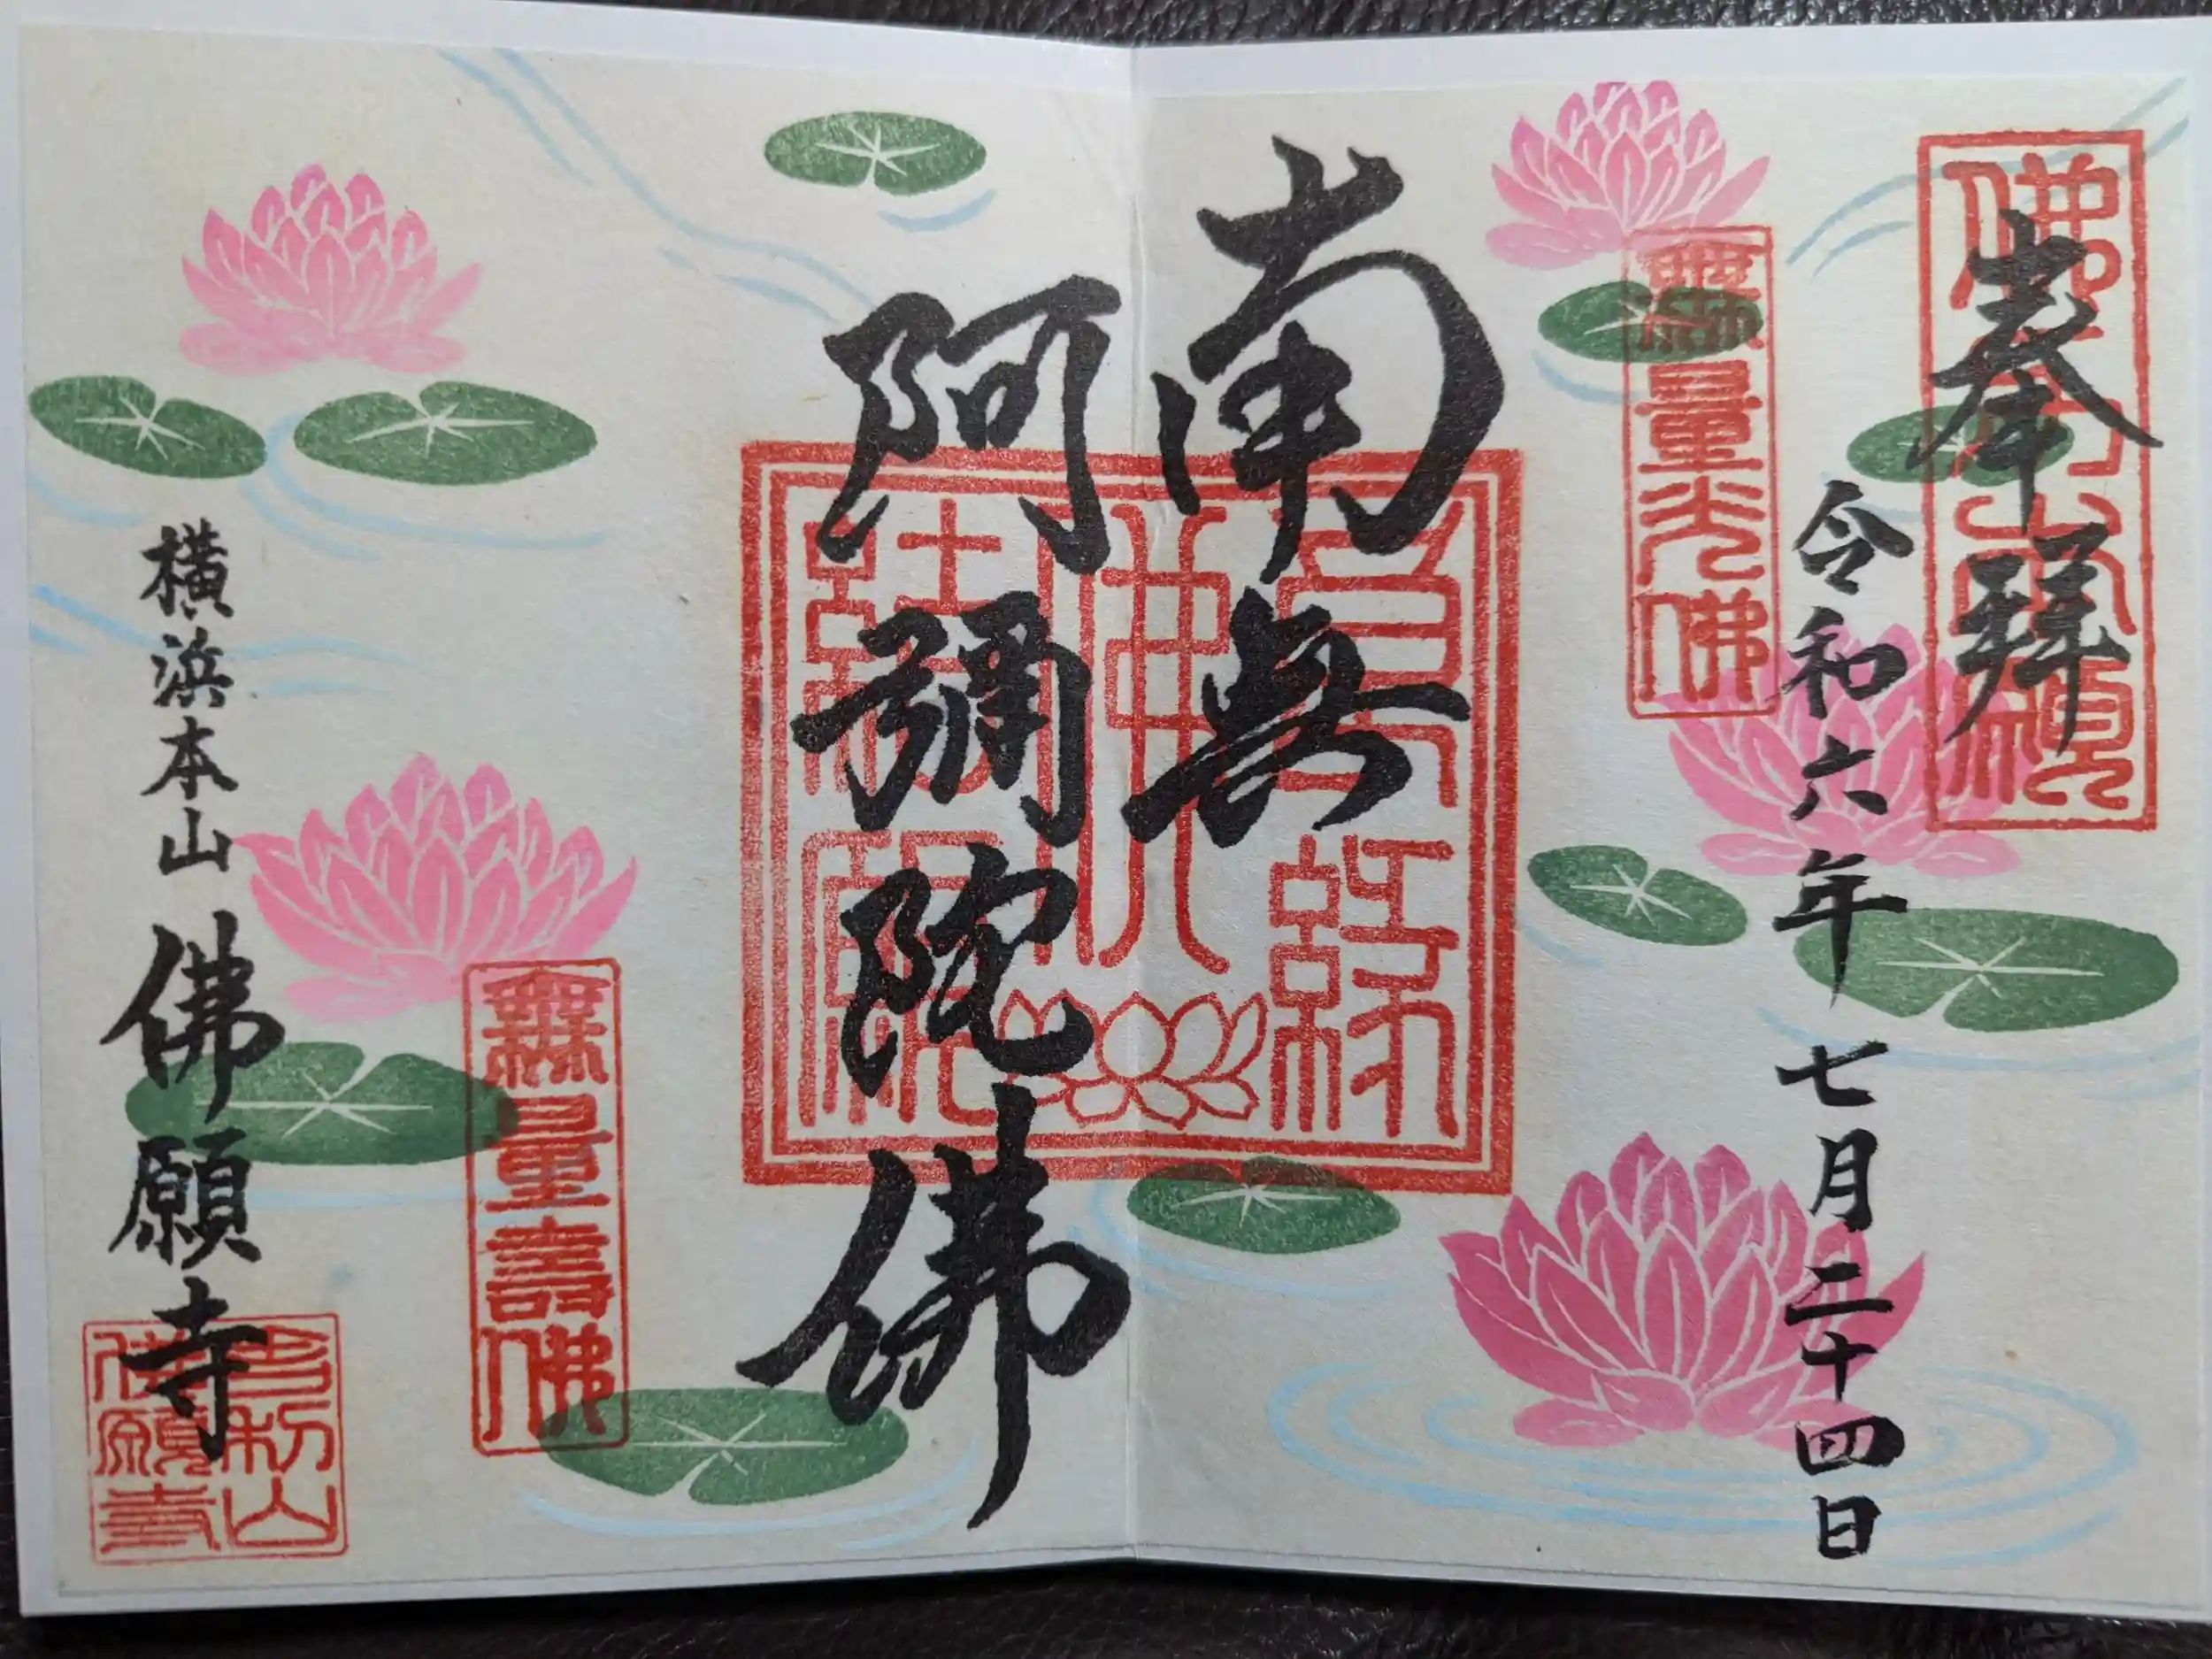 奉拜
令和六年七月二十四日
無量光佛
南無
阿彌陀佛
無量壽佛
横浜本山 佛願寺